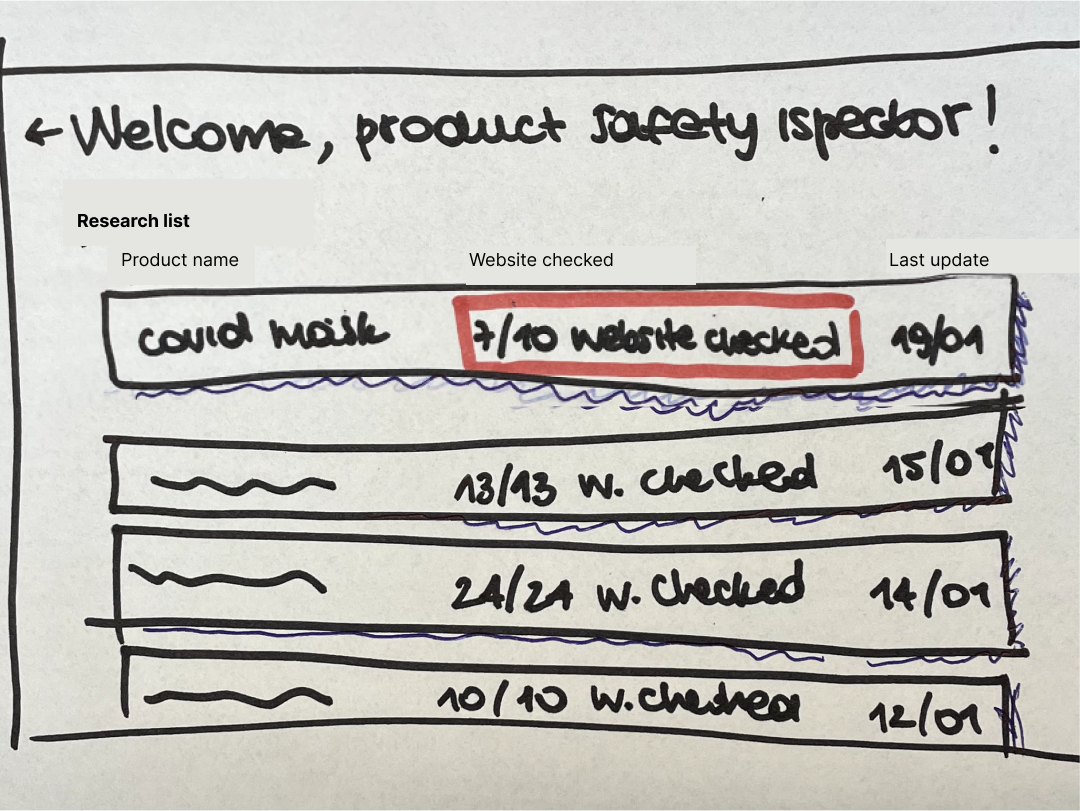 ← Welcome, product safety ispector!
Research list
Product name Website checked Last update
covid mask 7/10 website checked 19/01
13/13 w. checked 15/01
24/24 w. checked 14/01
10/10 w. checked 12/01